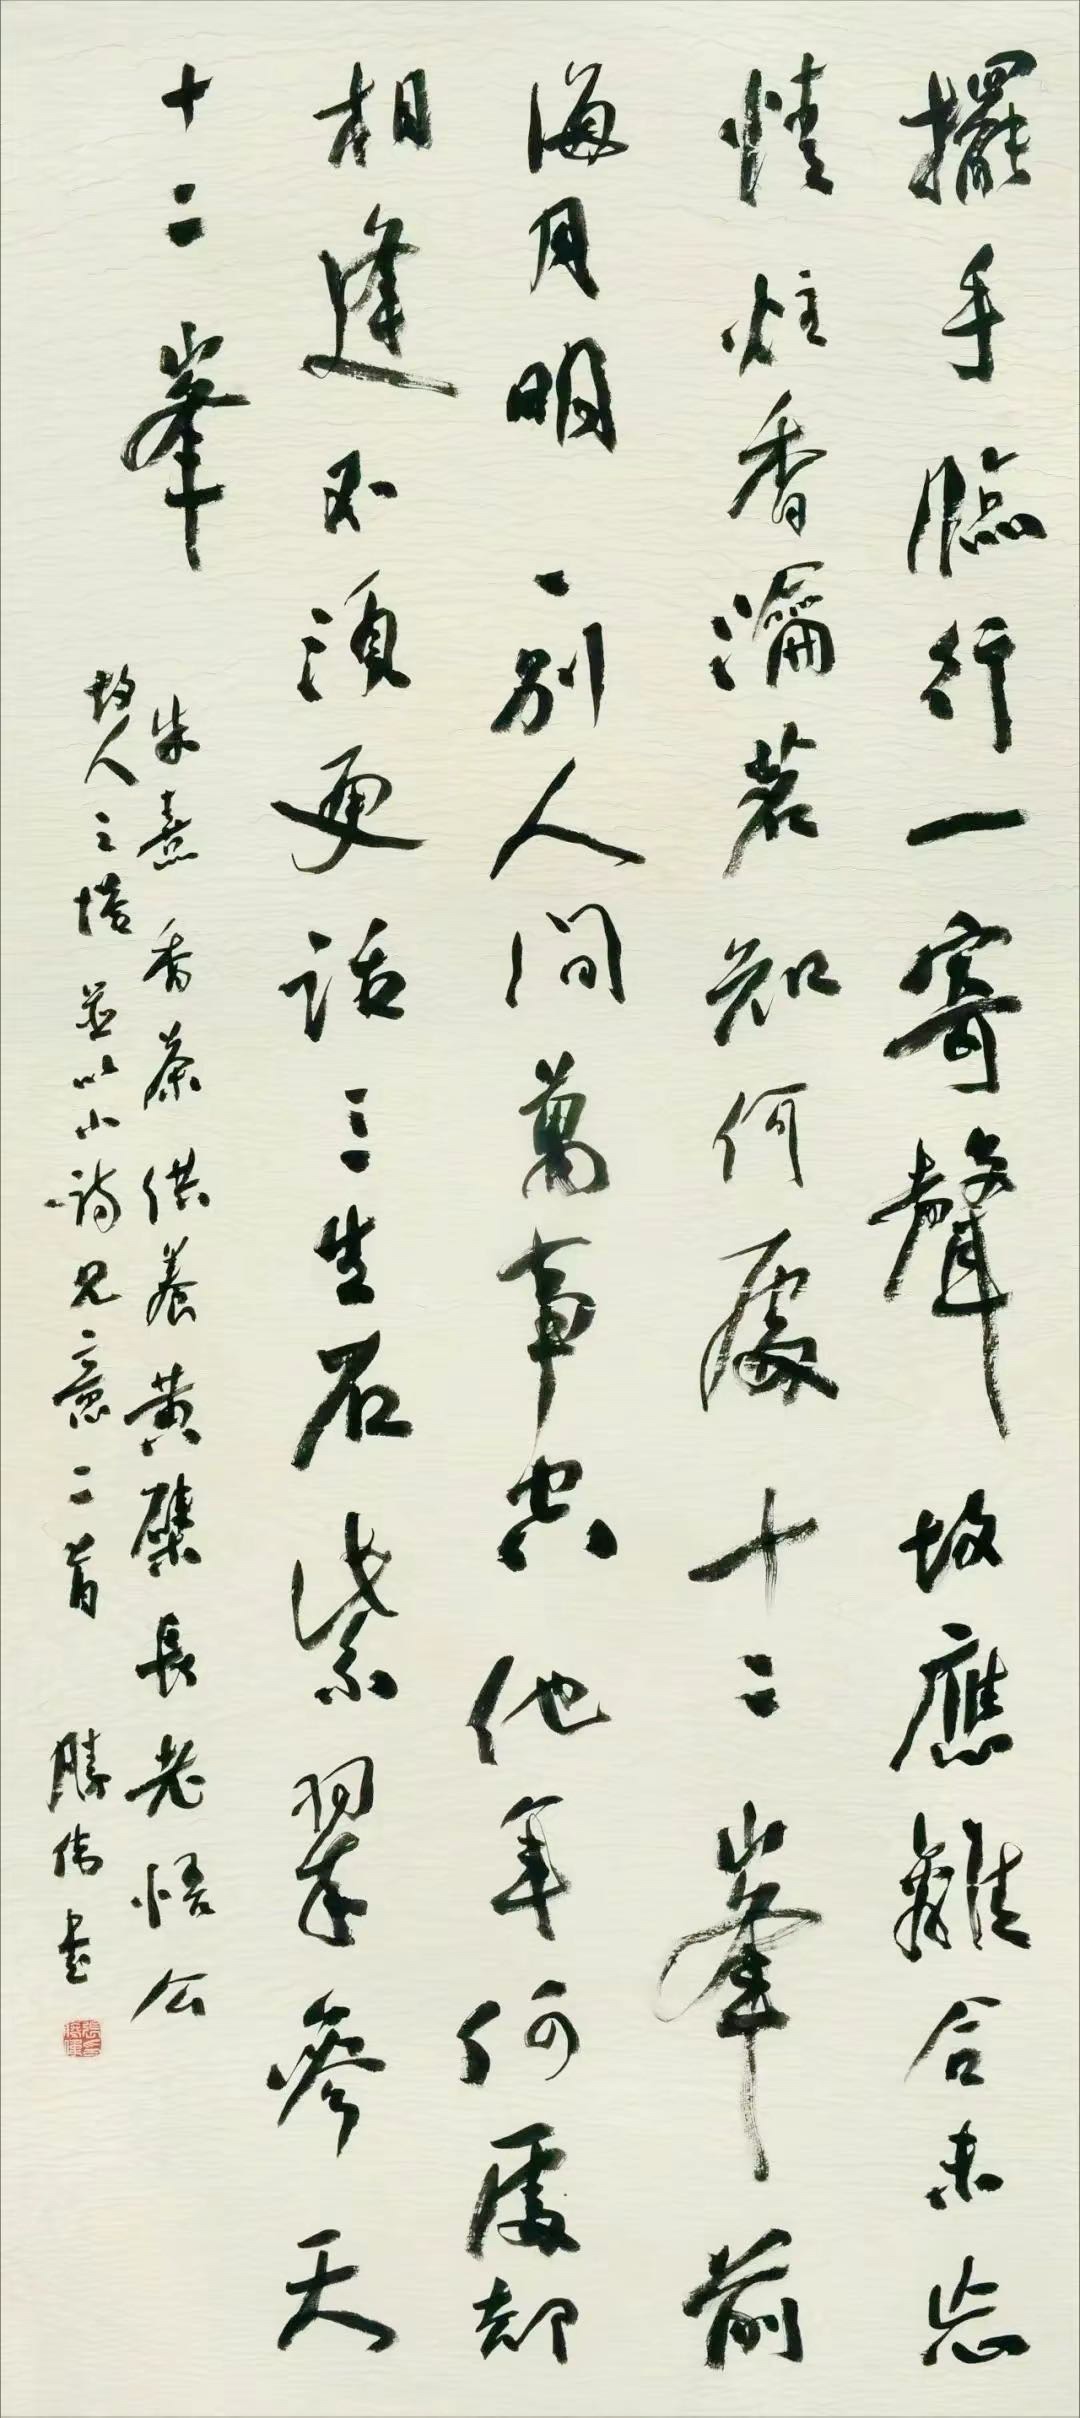 擺手臨行一寄聲故應離合未忘
情炷香瀹茗知何處十二峯前
海月明一別人間萬事空他年何處却
相逢不須更話三生石紫翠參天
十二峯
朱熹香茶供養黄檗長老悟公
故人之塔並以小詩見意二首 勝偉書